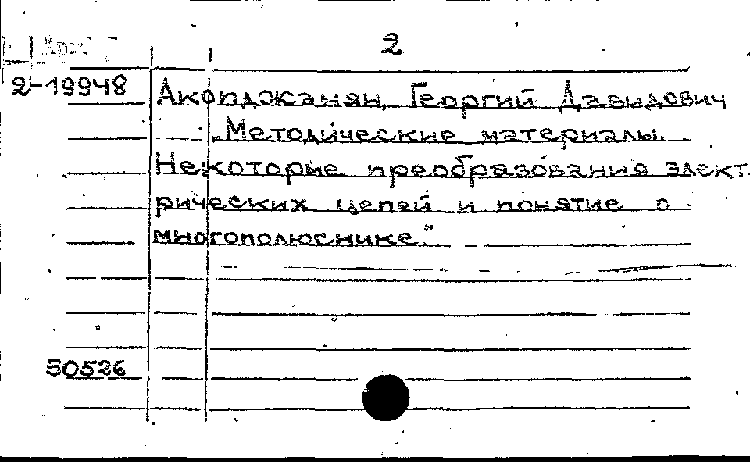 2
2-19948
Акопджанян, Георгий Давидович
„Методические материалы.
Некоторые преобразования элект-
рических цепей и понятие о
многополюснике."
50526